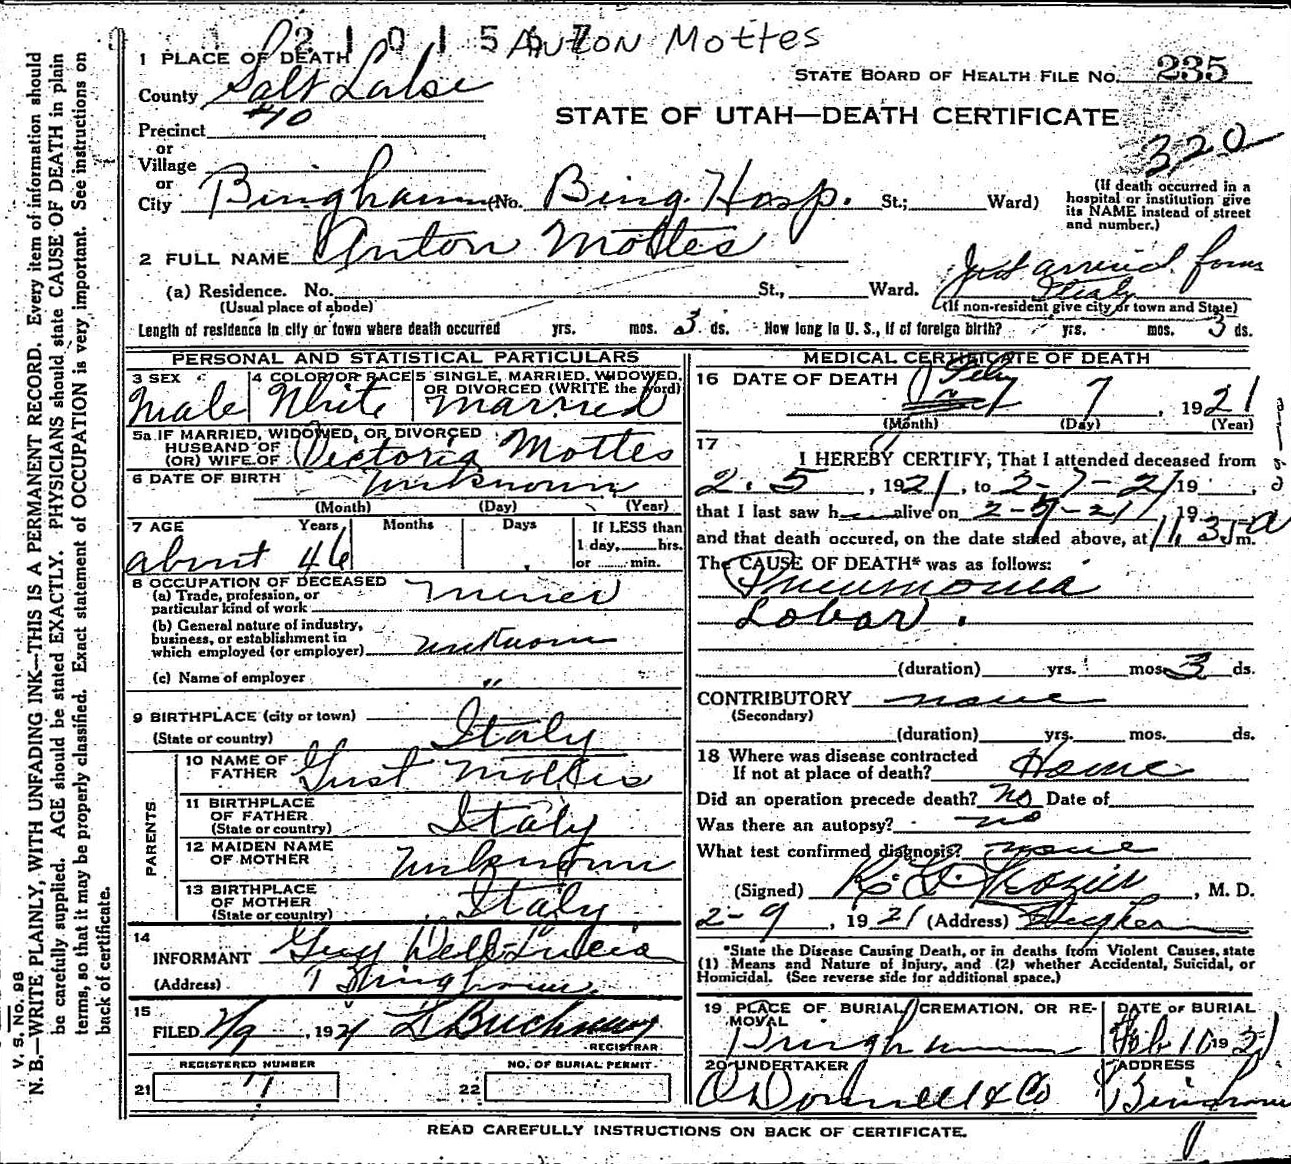 2101567 Anton Mottes
1 PLACE OF DEATH
STATE BOARD OF HEALTH FILE NO. 235
County Salt Lake
#40
STATE OF UTAH—DEATH CERTIFICATE
Precinct
or
320
Village
or
City Bingham (No. Bing. Hosp. St.; Ward)
(If death occurred in a
hospital or institution give
its NAME instead of street
and number.)
2 FULL NAME Anton Mottes
Just arrived from
Italy
(a) Residence. No. St., Ward.
(Usual place of abode)
(If non-resident give city or town and State)
Length of residence in city or town where death occurred yrs. mos. 3 ds. How long in U. S., if of foreign birth? yrs. mos. 3 ds.
PERSONAL AND STATISTICAL PARTICULARS
3 SEX
Male
4 COLOR OR RACE
White
5 SINGLE, MARRIED, WIDOWED,
OR DIVORCED (WRITE the word)
married
5a IF MARRIED, WIDOWED, OR DIVORCED
HUSBAND OF
(OR) WIFE OF Victoria Mottes
6 DATE OF BIRTH unknown
(Month) (Day) (Year)
7 AGE Years Months Days
about 46
If LESS than
1 day, hrs.
or min.
8 OCCUPATION OF DECEASED
(a) Trade, profession, or
particular kind of work miner
(b) General nature of industry,
business, or establishment in
which employed (or employer) unknown
(c) Name of employer "
9 BIRTHPLACE (city or town)
(State or country) Italy
PARENTS
10 NAME OF
FATHER Gust Mottes
11 BIRTHPLACE
OF FATHER
(State or country) Italy
12 MAIDEN NAME
OF MOTHER unknown
13 BIRTHPLACE
OF MOTHER
(State or country) Italy
14
INFORMANT Guy
(Address) Bingham
15
FILED 2/9 1921
REGISTRAR
REGISTERED NUMBER
21 7
NO. OF BURIAL PERMIT
22
MEDICAL CERTIFICATE OF DEATH
16 DATE OF DEATH Feby 7, 1921
(Month) (Day) (Year)
17
I HEREBY CERTIFY, That I attended deceased from
2.5, 1921, to 2-7-21 19
that I last saw h alive on 2-5-21, 19
and that death occured, on the date stated above, at 11.35 a m.
The CAUSE OF DEATH* was as follows:
Pneumonia
Lobar.
(duration) yrs. mos. 3 ds.
CONTRIBUTORY none
(Secondary)
(duration) yrs. mos. ds.
18 Where was disease contracted
If not at place of death? Home
Did an operation precede death? no Date of
Was there an autopsy? no
What test confirmed diagnosis? none
(Signed) M. D.
2-9, 1921 (Address)
*State the Disease Causing Death, or in deaths from Violent Causes, state
(1) Means and Nature of Injury, and (2) whether Accidental, Suicidal, or
Homicidal. (See reverse side for additional space.)
19 PLACE OF BURIAL, CREMATION, OR RE-
MOVAL
Bingham
DATE OF BURIAL
Feb 10 1921
20 UNDERTAKER
O'Donnell & Co
ADDRESS
Bingham
READ CAREFULLY INSTRUCTIONS ON BACK OF CERTIFICATE.
V. S. No. 98
N. B.—WRITE PLAINLY, WITH UNFADING INK—THIS IS A PERMANENT RECORD. Every item of information should
be carefully supplied. AGE should be stated EXACTLY. PHYSICIANS should state CAUSE OF DEATH in plain
terms, so that it may be properly classified. Exact statement of OCCUPATION is very important. See instructions on
back of certificate.